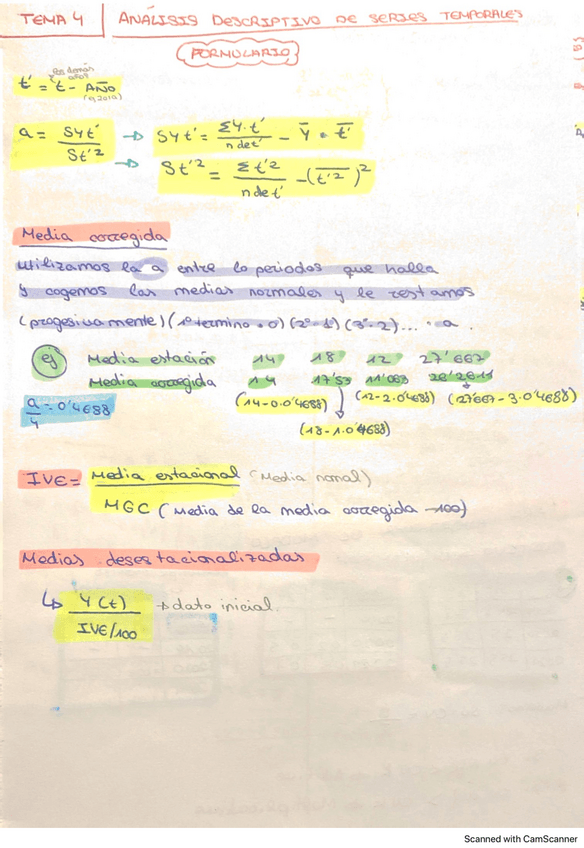 TEMA 4 ANÁLISIS DESCRIPTIVO DE SERIES TEMPORALES
FORMULARIO
t' = t - AÑO
a = Syt' / St'² → Syt' = ΣY·t' / n de t' - Ȳ · t̄'
→ St'² = Σt'² / n de t' - (t̄'²)²
Media corregida
Utilizamos la a entre lo periodos que halla
y cogemos las medias normales y le restamos
(progesivamente) (1º termino · 0) (2º - 1) (3º - 2) ... · a.
ej Media estación 14 18 12 27'667
Media corregida 14 17'53 11'063 26'2611
a/4 = 0'4688 (14-0·0'4688) (12-2·0'4688) (27'667-3·0'4688)
(18-1·0'4688)
IVE = Media estacional (Media normal)
MGC (Media de la media corregida →100)
Medias desestacionalizadas
↳ Y(t) → dato inicial.
IVE/100
Scanned with CamScanner